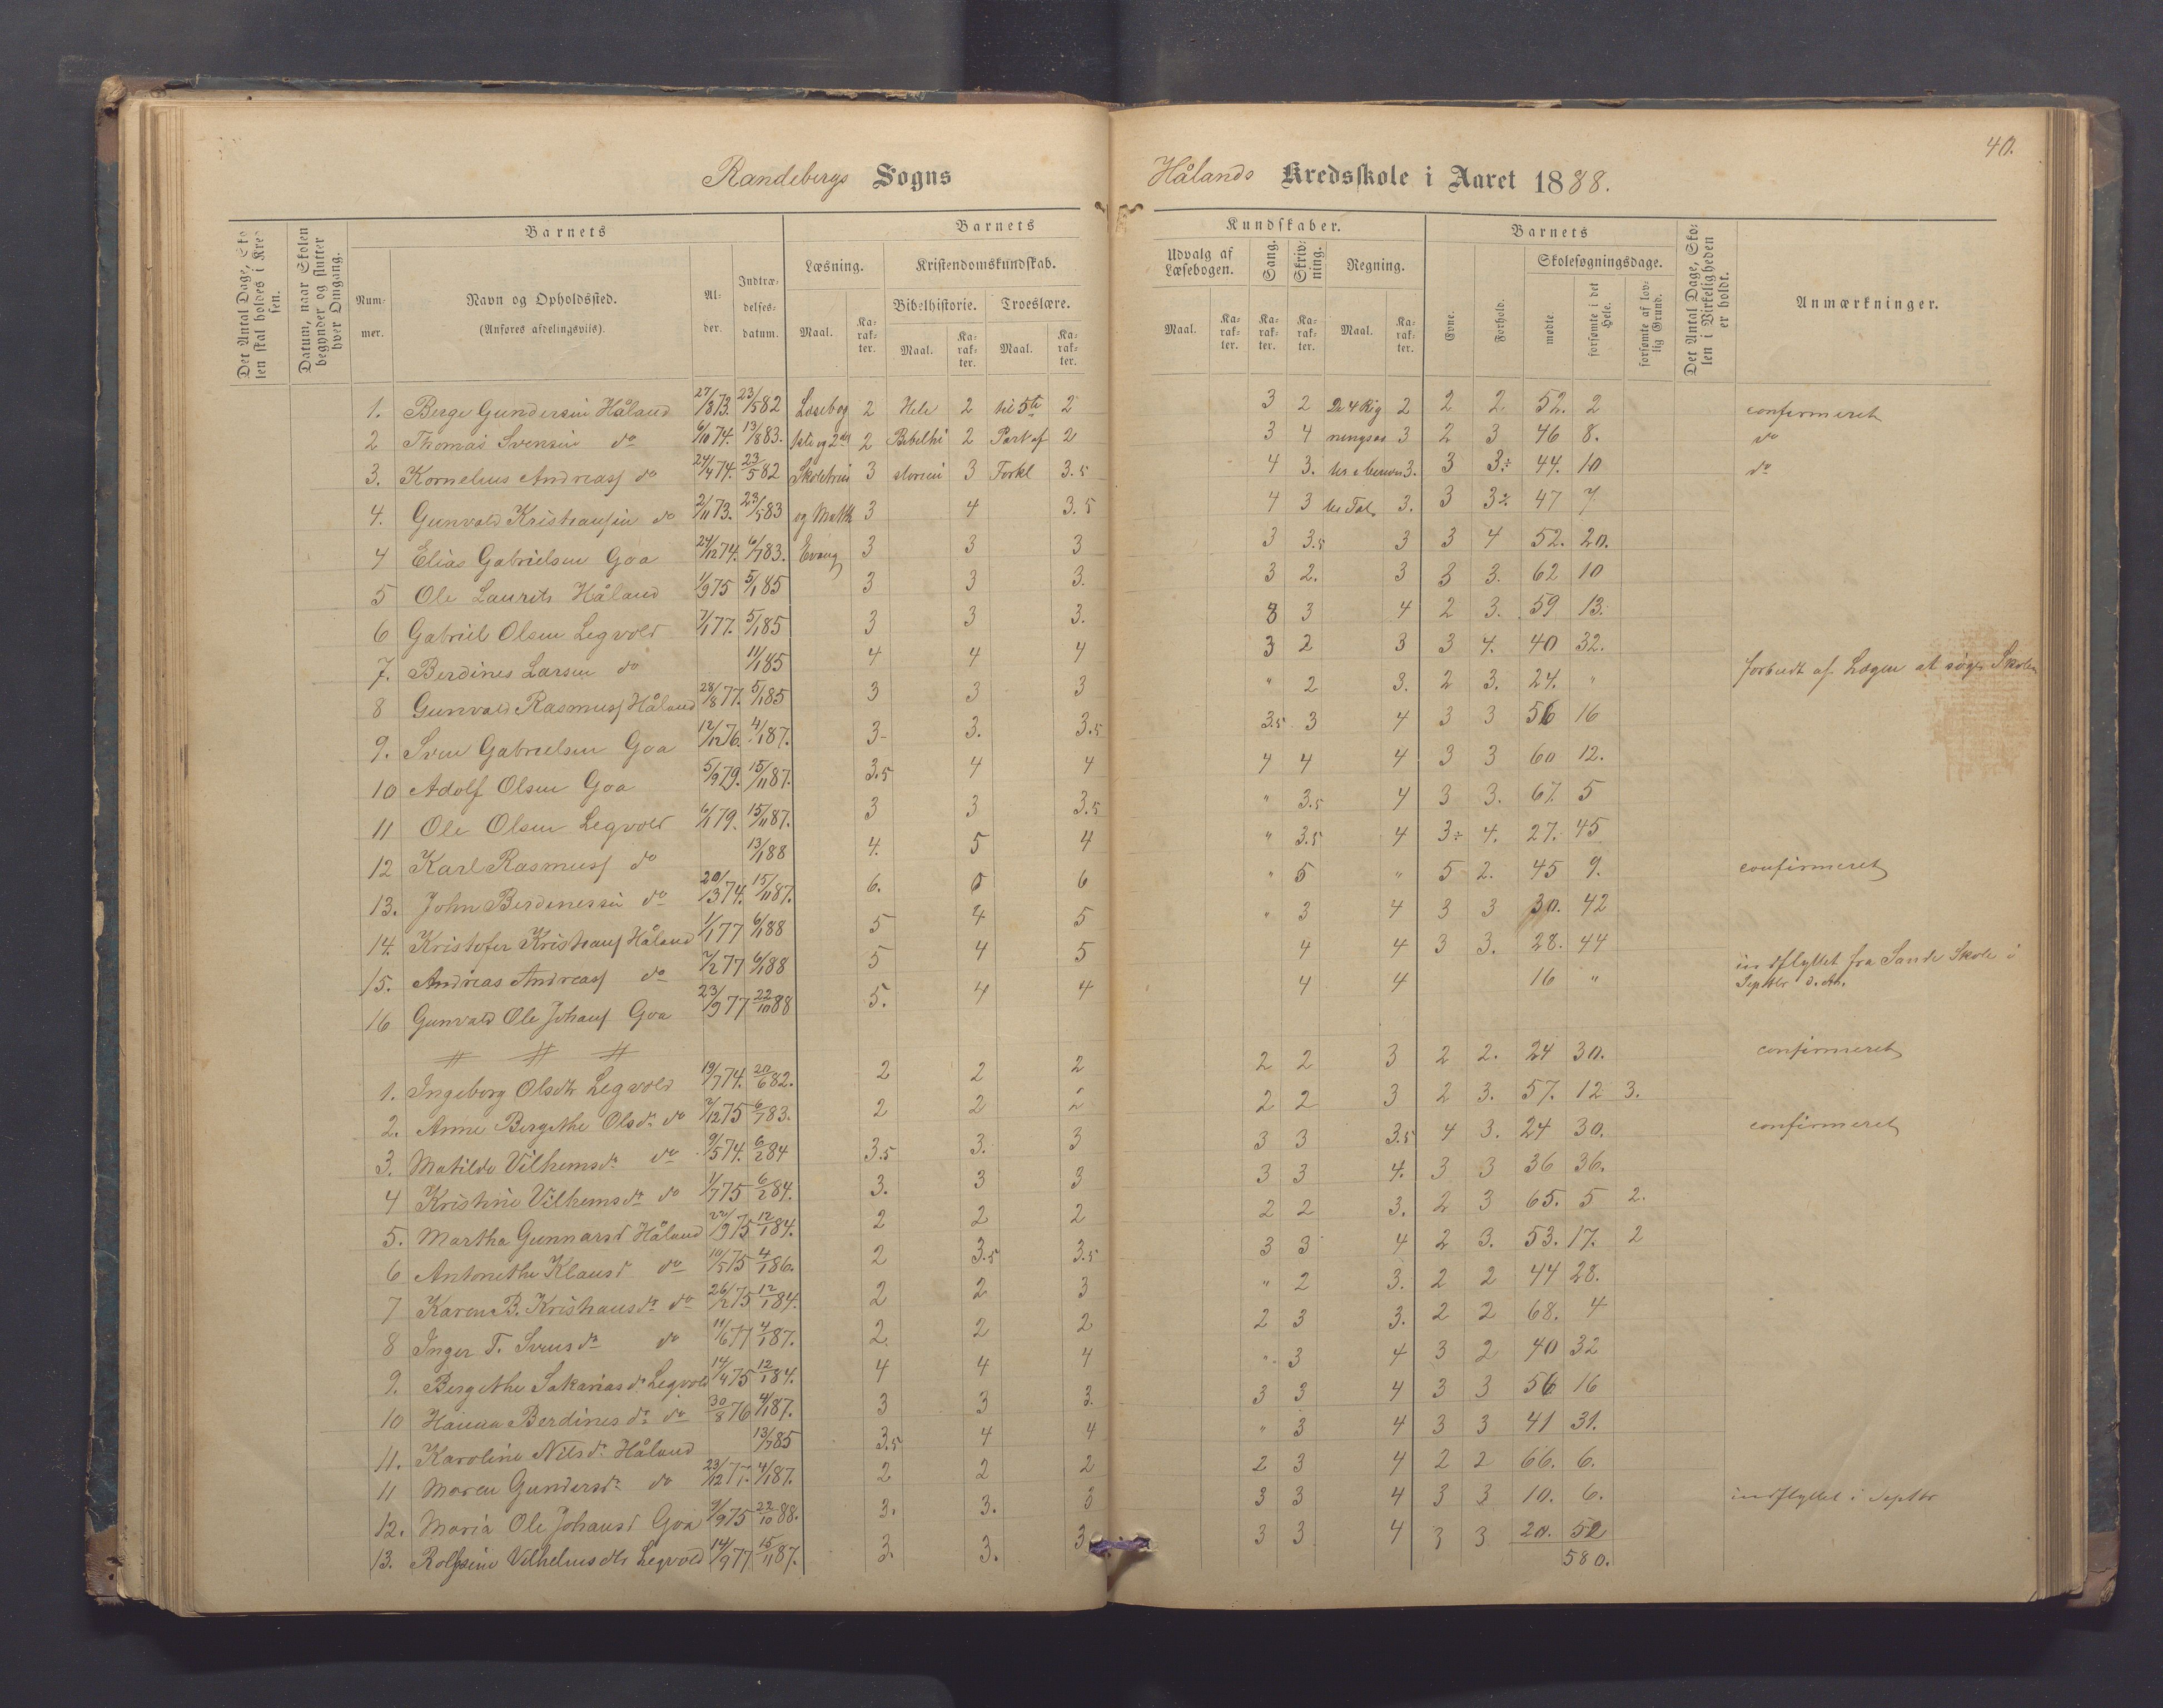 40.
Randebergs Sogns
Hålands Kredsskole i Aaret 1888.
Det Antal Dage, Skolen skal holdes i Kredsen.
Datum, naar Skolen begynder og slutter hver Omgang.
Barnets
Nummer.
Navn og Opholdssted.
(Anføres afdelingsvis).
Alder.
Indtrædelsesdatum.
Barnets
Læsning.
Kristendomskundskab.
Bibelhistorie. Troeslære.
Maal. Karakter. Maal. Karakter. Maal. Karakter.
Kundskaber.
Udvalg af Læsebogen.
Sang.
Skrivning.
Regning.
Maal. Karakter. Karakter. Karakter. Maal. Karakter.
Barnets
Evne.
Forhold.
Skolesøgningsdage.
mødte. forsømte i det Hele. forsømte af lovlig Grund.
Det Antal Dage, Skolen i Virkeligheden er holdt.
Anmærkninger.
1. Berge Gundersen Håland 27/8 73. 23/5 82 Læsebog 2 Hele 2 til 5te 2 3 2 De 4 Rig 2 2 2 52. 2 confirmeret
2 Thomas Svensen do 6/10 74. 13/8 83. 2 Bibelhi 2 Part af 2 3 4 ningsar 3 2 3 46 8. do
3. Kornelius Andreass do 24/4 74. 23/5 82 Skoletrin 3 storien 3 Forkl 3.5 4 3. 3. 3 3÷ 44. 10 do
4. Gunvald Kristiansen do 2/11 73. 23/5 83 og Math 3 4 3.5 4 3 Tal. 3. 3 3÷ 47 7
4 Elias Gabrielsen Goa 24/12 74. 6/1 83. Evang 3 3 3 3 3.5 3 3 4 52. 20.
5 Ole Laurits Håland 1/9 75 5/1 85 3 3 3. 3 2. 3 3 3. 62 10
6 Gabriel Olsen Legvold 7/1 77. 5/1 85 3 3 3. 3 3 4 2 3. 59 13.
7. Berdines Larsen do 11/1 85 4 4 4 3 2 3 3 4. 40 32.
8 Gunvald Rasmuss Håland 28/8 77. 5/1 85 3 3 3 " 2 3. 2 3. 24. " forbudt af Lægen at søge Skolen
9. Sven Gabrielsen Goa 12/12 76. 4/1 87. 3 3. 3.5 3.5 3 4 3 3 56 16
10 Adolf Olsen Goa 5/9 79. 15/11 87. 3.5 4 4 4 4 4 3 3 60 12.
11 Ole Olsen Legvold 6/1 79. 15/11 87. 3 3 3.5 " 3.5 4 3 3. 67. 5
12 Karl Rasmuss do 13/1 88 4. 5 4 " 3.5 4 3÷ 4. 27. 45
13. John Berdinessen do 20/3 74. 15/11 87. 6. 5 6 " 5 " 5 2. 45 9. confirmeret
14. Kristofer Kristians Håland 1/1 77 6/1 88 5 4 5 " 3 4 3 3 30. 42
15. Andreas Andreass do 7/2 77 6/1 88 5 4 5 4 4 3 3. 28. 44
16 Gunvald Ole Johans Goa 23/9 77 22/10 88 5. 4 4 4 4 16 " indflyttet fra Sande Skole i
Septbr d. A.
1. Ingeborg Olsdtr Legvold 19/7 74. 20/6 82. 2 2 2 2 2 3 2 2. 24 30. confirmeret
2. Anne Bergithe Olsdr do 2/12 75 6/1 83. 2 2 2 2 2 3 2 3. 57. 12 3.
3. Matilde Vilhemsdr do 9/5 74. 6/2 84 3.5 3. 3 3 3 3.5 4 3. 24 30. confirmeret
4 Kristine Vilhemsdr do 1/7 75 6/2 84. 3. 3 3 3 3 4. 3 3 36 36.
5. Martha Gunnarsd Håland 22/9 75 12/1 84. 2 2 2 2 2 3. 2 3 65. 5 2.
6 Antonethe Klausd do 10/5 75 4/1 86. 2 3.5 3.5 3 3 4 2 3. 53. 17. 2
7 Karen B. Kristiansdr do 26/2 75 12/1 84. 2 2 3 " 2 3. 2 2 44 28.
8 Inger T. Svensdr do 11/6 77 4/1 87. 2. 2 2 2 3 3. 2 2 68. 4
9. Bergithe Sakariasdr Legvold 14/4 75 12/1 84. 4 4 4 " 3 4 3 2 40 32
10 Hanna Berdinesdr do 30/8 76 4/1 87. 3 3 3. 3 3 4 3 3 56 16
11. Karoline Nilsdr Håland 13/7 85 3.5 4 4 " 3 4 3 3 41 31.
11 Maren Gundersdr do 23/12 77. 4/1 87. 2 2 2 2 3 4 2 2 66. 6.
12. Maria Ole Johansd Goa 9/9 75 22/10 88. 3. 3. 3 3 3 4 3 3 10. 6. indflyttet i Septbr
13. Rolfsine Vilhelmsdtr Legvold 14/9 77 15/11 87. 3. 3. 3. 3 3 4 3 3 20. 52
580.